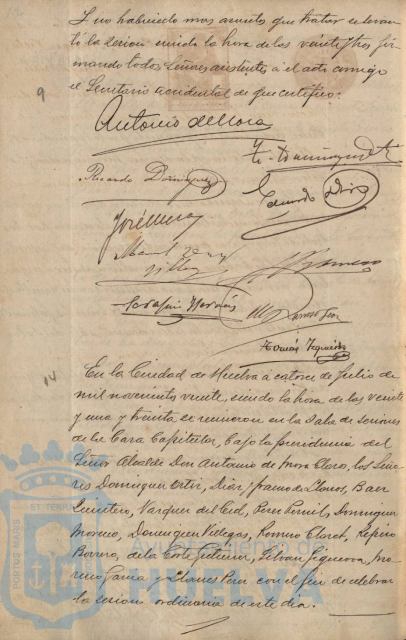 Y no habiendo mas asuntos que tratar se levan
tó la sesion siendo la hora de las veintitres fir
mando todos Señores asistentes á el acto comigo
el Secretario accidental de que certifico.
9
Antonio de Mora
Ricardo Dominguez
Eduardo Diaz
José
Manuel
Serafin
Tomás Figueroa
14
En la Ciudad de Huelva á catorce de Julio de
mil novecientos veinte, siendo la hora de las veinte
y una y treinta se reunieron en la Sala de sesiones
de la Casa Capitular, bajo la presidencia del
Señor Alcalde Don Antonio de Mora Claros, los Seño
res Dominguez Ortiz, Diaz Franco de Llanos, Baez
Quintero, Vazquez del Cid, Perez Pernil, Dominguez
Moreno, Dominguez Villegas, Romero Cloret,
Borrero, de la Corte Gutierrez, Figueroa, Mo
reno Garcia y Llanes Perez con el fin de celebrar
la sesion ordinaria de este dia.
Ayuntamiento de
HUELVA
PORTUS MARIS ET TERRAE